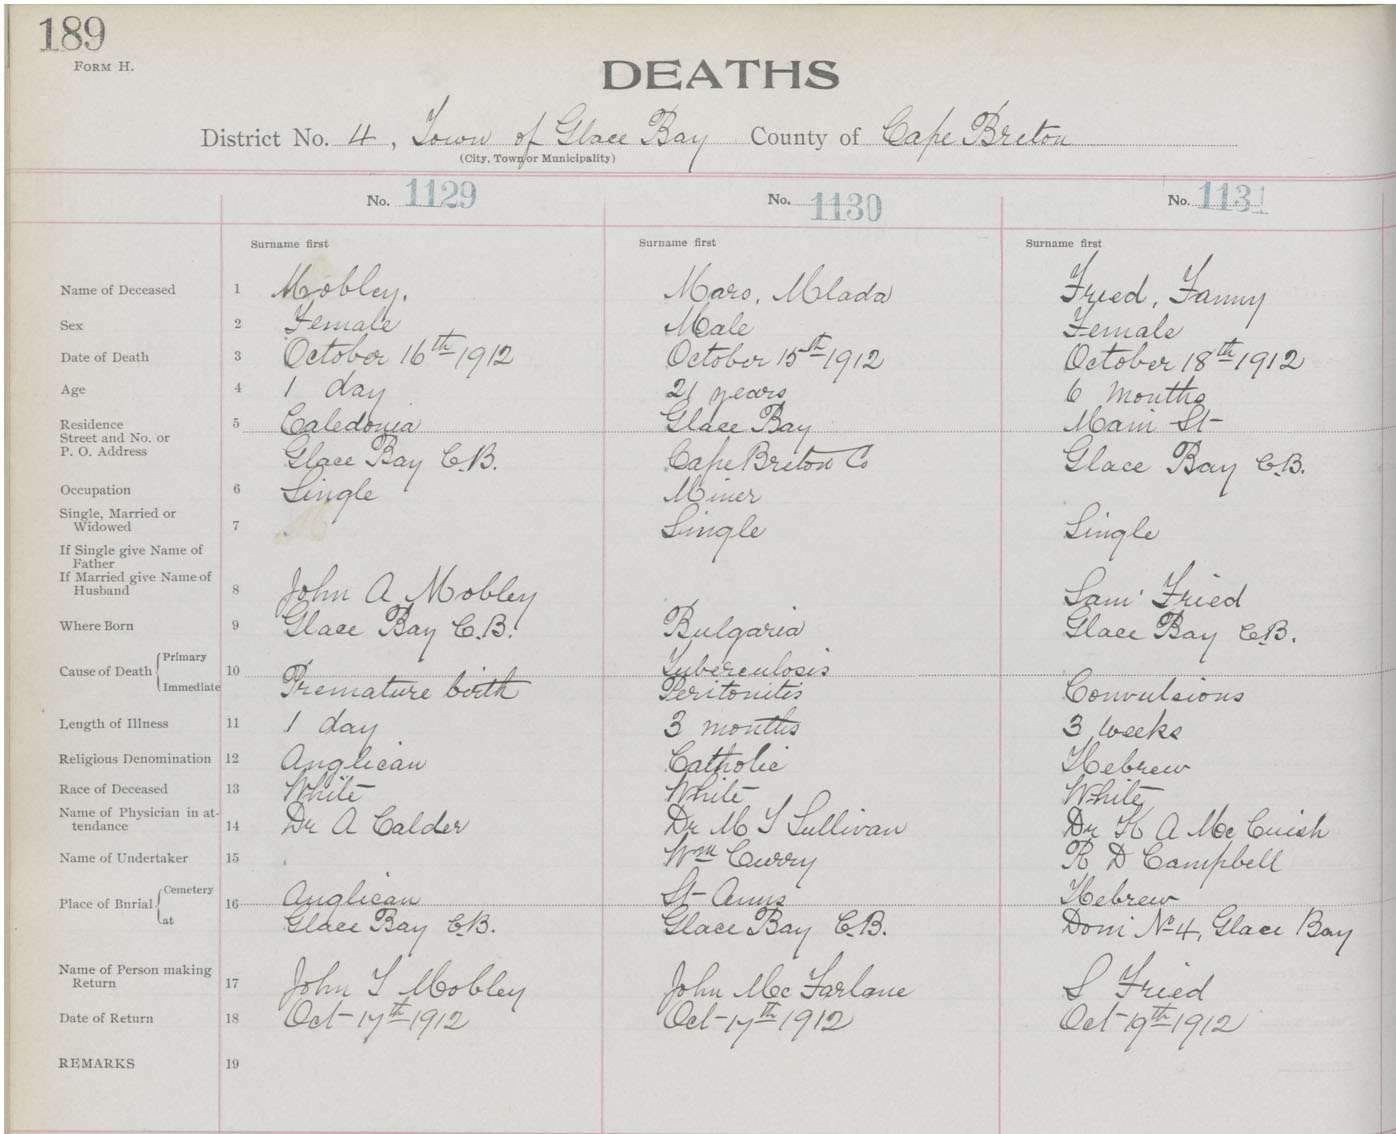 189
FORM H.
DEATHS
District No. 4, Town of Glace Bay County of Cape Breton
(City, Town or Municipality)
No. 1129 No. 1130 No. 1131
Surname first Surname first Surname first
Name of Deceased 1 Mobley. Maro, Mlada Fried, Fanny
Sex 2 Female Male Female
Date of Death 3 October 16th 1912 October 15th 1912 October 18th 1912
Age 4 1 day 21 years 6 months
Residence 5 Caledonia Glace Bay Main St-
Street and No. or
P. O. Address Glace Bay C.B. Cape Breton Co Glace Bay C.B.
Occupation 6 Single Miner
Single, Married or
Widowed 7 Single Single
If Single give Name of
Father
If Married give Name of
Husband 8 John A Mobley Sam' Fried
Where Born 9 Glace Bay C.B. Bulgaria Glace Bay C.B.
Cause of Death Primary 10 Tuberculosis
Immediate Premature birth Peritonitis Convulsions
Length of Illness 11 1 day 3 months 3 weeks
Religious Denomination 12 Anglican Catholic Hebrew
Race of Deceased 13 White White White
Name of Physician in at-
tendance 14 Dr A Calder Dr M T Sullivan Dr K A McCuish
Name of Undertaker 15 Wm Curry R D Campbell
Place of Burial Cemetery 16 Anglican St- Anns Hebrew
at Glace Bay C.B. Glace Bay C.B. Dom No 4, Glace Bay
Name of Person making
Return 17 John T Mobley John McFarlane S Fried
Date of Return 18 Oct- 17th 1912 Oct- 17th 1912 Oct- 19th 1912
REMARKS 19